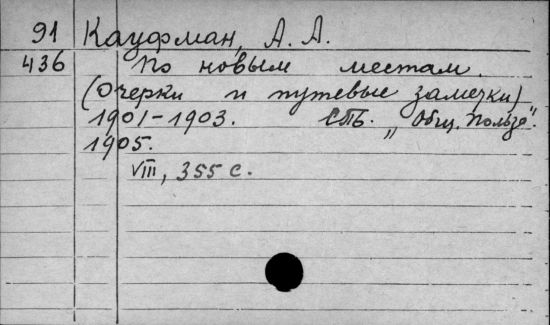 91 Кауфман, А. А.
436 По новым местам.
(Очерки и путевые заметки)
1901-1903. СПБ. „Общ. Польза".
1905.
VIII, 355 с.